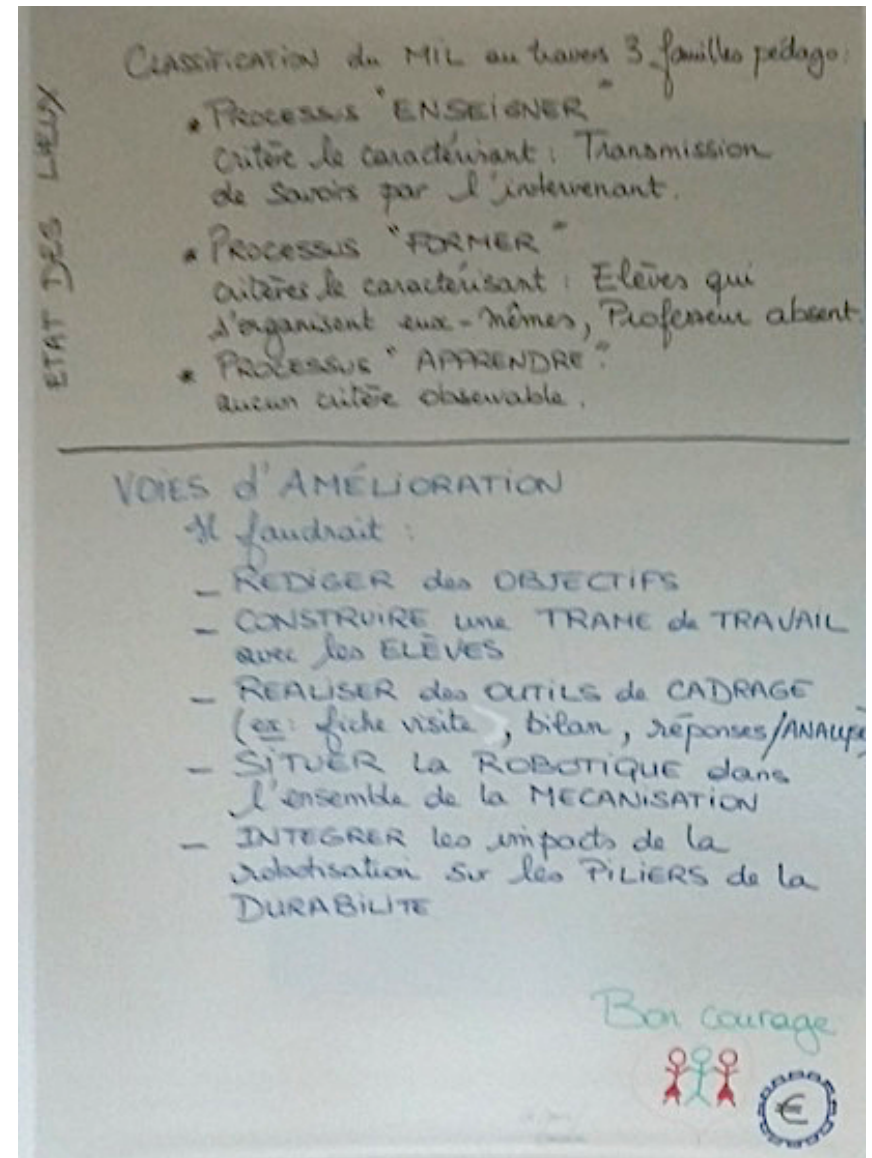 ETAT DES LIEUX
CLASSIFICATION du MIL au travers 3 familles pédago:
* PROCESSUS "ENSEIGNER"
critère le caractérisant : Transmission
de Savoirs par l'intervenant.
* PROCESSUS "FORMER"
critères le caractérisant : Elèves qui
s'organisent eux-mêmes, Professeur absent.
* PROCESSUS "APPRENDRE":
aucun critère observable.
VOIES d'AMÉLIORATION
Il faudrait :
- REDIGER des OBJECTIFS
- CONSTRUIRE une TRAME de TRAVAIL
avec les ELÈVES
- REALISER des OUTILS de CADRAGE
(ex: fiche visite, bilan, réponses/ANALYSE
- SITUER la ROBOTIQUE dans
l'ensemble de la MECANISATION
- INTEGRER les impacts de la
robotisation sur les PILIERS de la
DURABILITE
Bon courage
€